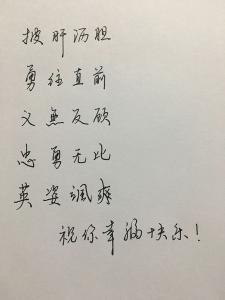 披肝沥胆
勇往直前
义無反顾
忠勇无比
英姿飒爽
祝你幸福快乐！